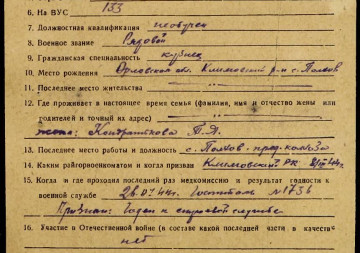 6. На ВУС 133
7. Должностная квалификация необучен
8. Военное звание Рядовой
9. Гражданская специальность кузнец
10. Место рождения Орловская обл. Климовский р-н с.
11. Последнее место жительства
12. Где проживает в настоящее время семья (фамилия, имя и отчество жены или
родителей и точный их адрес)
жена: Кондрашкова
13. Последнее место работы и должность с. пред. колхоза
14. Каким райгорвоенкоматом и когда призван Климовский РВК
15. Когда и где проходил последний раз медкомиссию и результат годности к
военной службе 26.04.44г. Госпиталь №1736
Признан: Годен к строевой службе
16. Участие в Отечественной войне (в составе какой последней части в качеств
нет